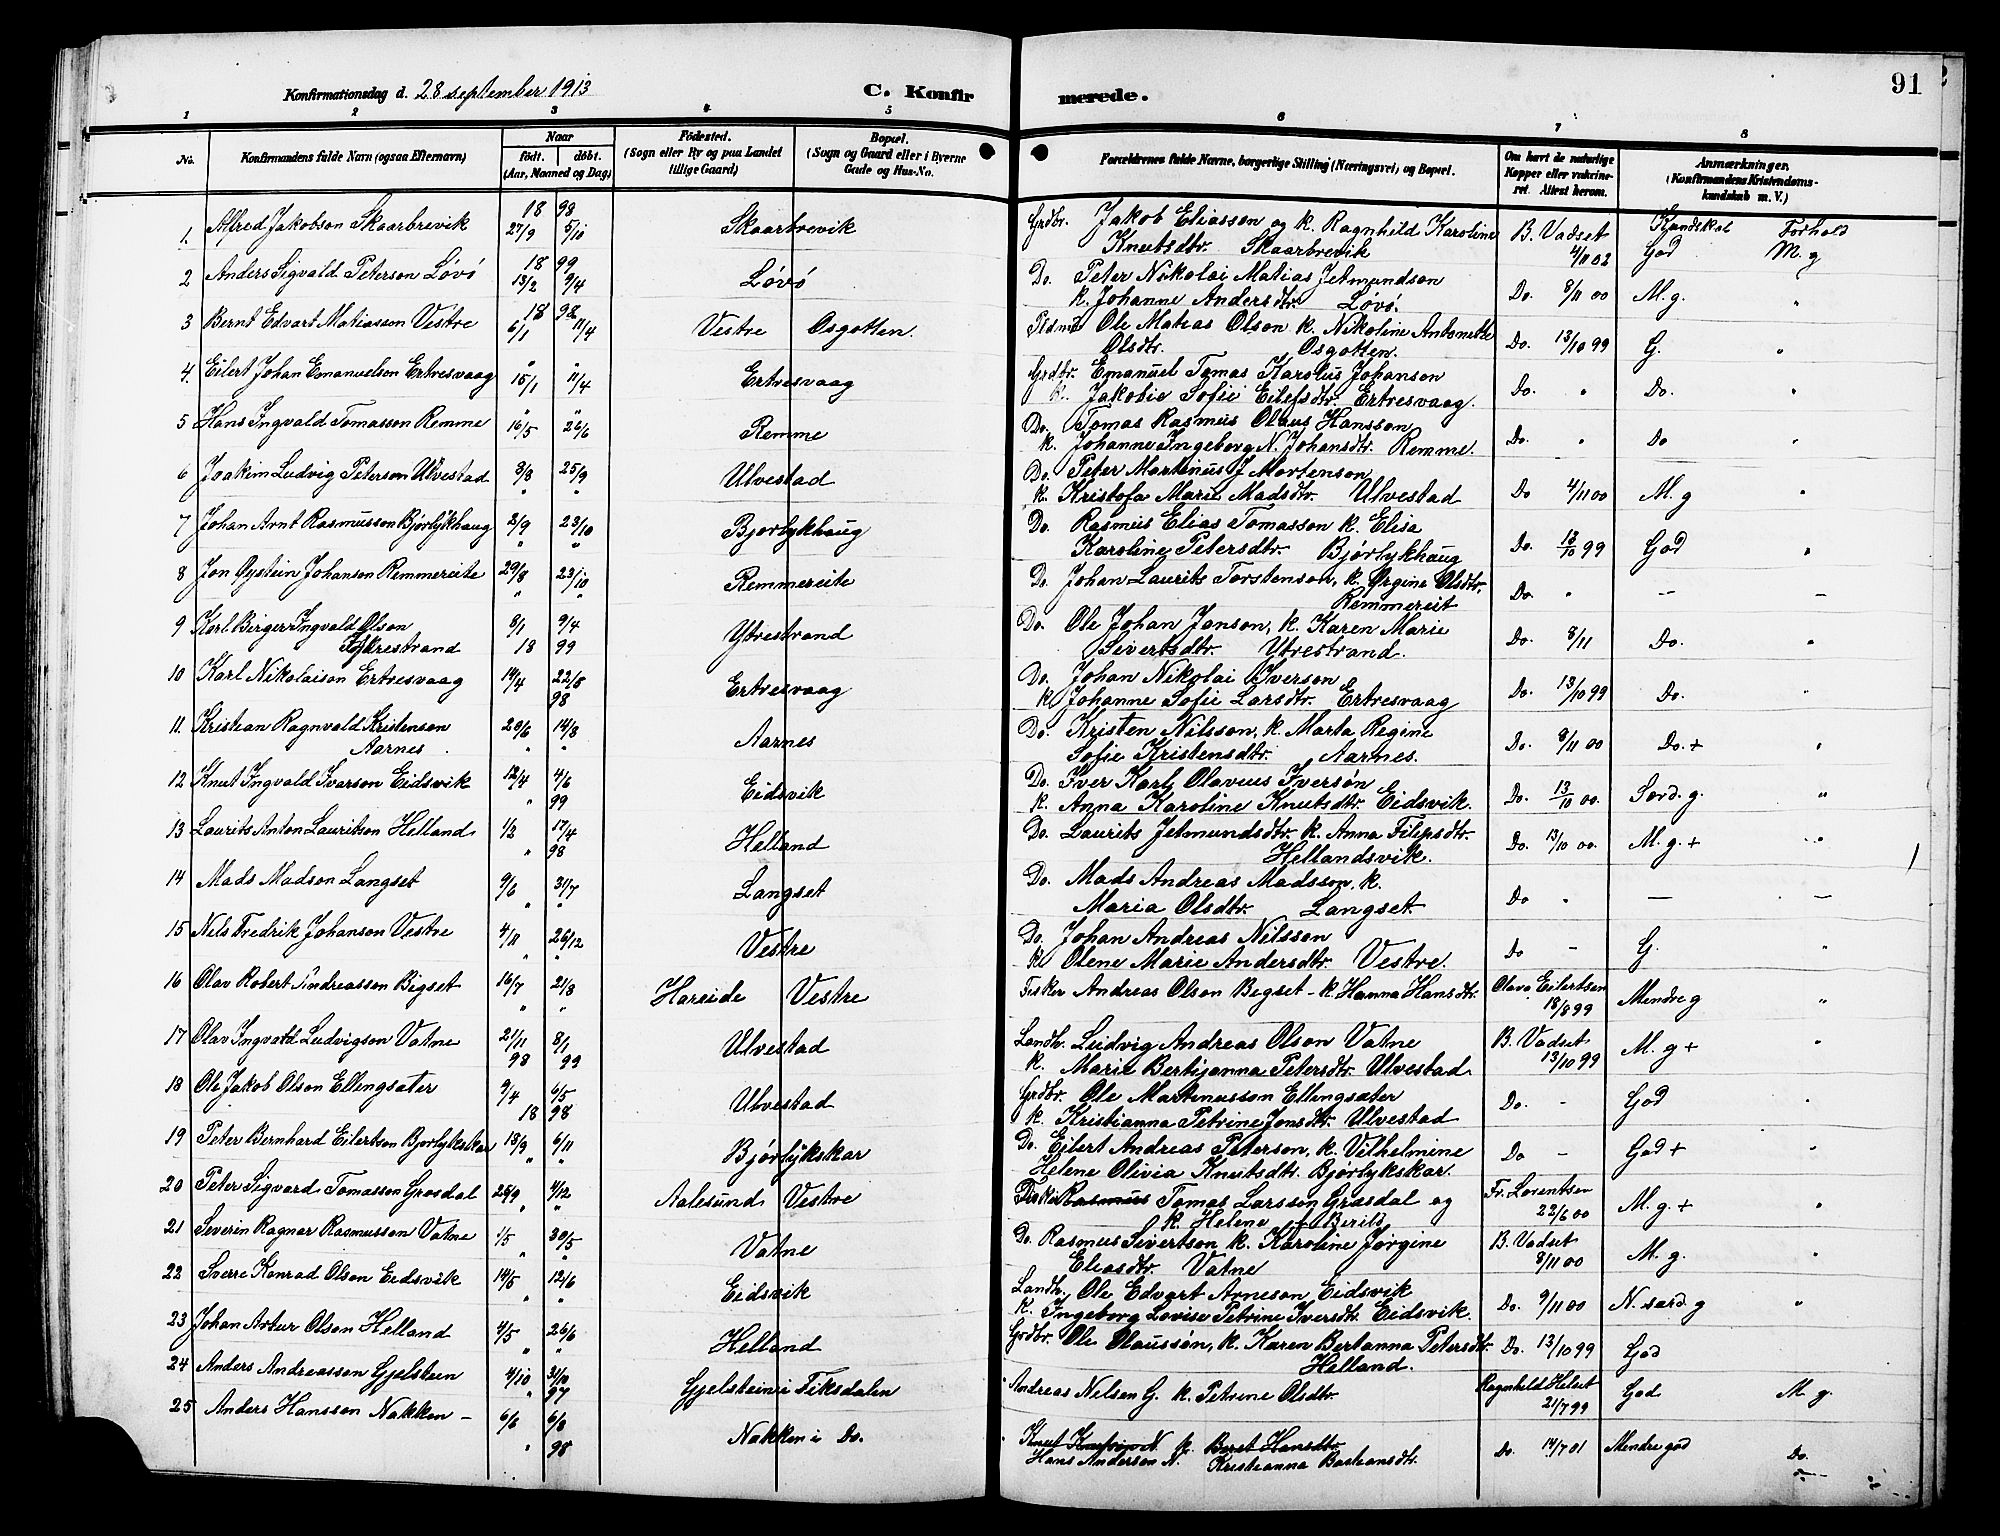 91
Konfirmationsdag d. 28 september 1913
C. Konfirmerede.
1 2 3 4 5 6 7 8
No. Konfirmandens fulde Navn (ogsaa Efternavn) Naar født. døbt. (Aar, Maaned og Dag) Fødested. (Sogn eller By og paa Landet tillige Gaard) Bopæl. (Sogn og Gaard eller i Byerne Gade og Hus-No. Forældrenes fulde Navne, borgerlige Stilling (Næringsvei) og Bopæl. Om havt de naturlige Kopper eller vakcineret. Attest herom. Anmærkninger. (Konfirmandens Kristendomskundskab m. V.)
Kundskab Forhold
1. Alfred Jakobson Skaarbrevik 18 98 27/9 5/10 Skaarbrevik Grdbr. Jakob Eliassen og k. Ragnhild Karoline B. Vadset
Knutsdtr. Skaarbrevik 4/11 02 God M. g
2 Anders Sigvald Peterson Løvø 18 99 13/2 9/4 Løvø Do. Peter Nikolai Matias Jetmundson
k. Johanne Andersdtr. Løvø. Do. 8/11 00 M. g. "
3 Bernt Edvart Matiasson Vestre 18 98 6/1 11/4 Vestre Osgotten. Ole Matias Olson k. Nikoline Antonette
Olsdtr. Osgotten. Do. 13/10 99 G. "
4. Eilert Johan Emanuelson Ertresvaag " " 15/1 11/4 Ertresvaag Grdbr. Emanuel Tomas Karolus Johanson
k. Jakobie Sofie Eilefsdtr. Ertresvaag. Do. " Do. "
5 Hans Ingvald Tomasson Remme " " 16/5 26/6 Remme Do. Tomas Rasmus Olaus Hansson
k. Johanne Ingeborg N. Johansdtr. Remme. Do. " Do "
6 Joakim Ludvig Peterson Ulvestad 8/8 25/9 Ulvestad Do. Peter Martinus J Mortenson
k. Kristofa Marie Madsdtr. Ulvestad Do 4/11 00 M. g "
7 Johan Arnt Rasmusson Bjørlykhaug 2/9 23/10 Bjorlykhaug Do. Rasmus Elias Tomasson k. Elisa
Karoline Petersdtr. Bjørlykhaug Do. 13/10 99 God "
8 Jon Øystein Johanson Remmereite 29/8 23/10 Remmereite Do. Johan Laurits Torstenson, k. Ørgine Olsdtr.
Remmereit Do. " — —
9 Karl Berger Ingvald Olson 8/1 9/4 Ytrestrand Do. Ole Johan Janson, k. Karen Marie
Ytrestrand 18 99 Sivertsdtr. Ytrestrand. Do. 8/11 Do. "
10 Karl Nikolaison Ertresvaag 14/4 22/5 98 Ertresvaag Do. Johan Nikolai Iverson
k Johanne Sofie Larsdtr. Ertresvaag Do. 13/10 99 Do. "
11. Kristian Ragnvald Kristenson 20/6 14/8 Aarnes Do. Kristen Nilsson, k. Marta Regine
Aarnes. Sofie Kristensdtr. Aarnes. Do. 8/11 00 Do. + "
12 Knut Ingvald Ivarson Eidsvik 12/4 4/6 99 Eidsvik Do. Iver Karl Olavius Iversøn
k. Anna Karoline Knutsdtr. Eidsvik. Do. 13/10 00. Særd. g. "
13 Laurits Anton Lauritson Helland 1/2 17/4 98 Helland Do. Laurits Jetmundsdtr. k. Anna Filipsdtr.
Hellandsvik. Do. 13/10 00. M. g. + "
14 Mads Madson Langset 9/6 31/7 Langset Do. Mads Andreas Madsson, k.
Maria Olsdtr. Langset. Do " — —
15 Nils Fredrik Johanson Vestre 4/11 26/12 Vestre Do. Johan Andreas Nilsson
k. Olene Marie Andersdtr. Vestre. Do – G. "
16 Olav Robert Andreasson Bigset 16/7 21/8 Hareide Vestre Fisker Andreas Olson Bigset – k. Hanna Hansdtr. Olava Eilertsen
18/8 99 Mendre g "
17 Olav Ingvald Ludvigson Vatne 21/11 98 8/1 99 Ulvestad Landh. Ludvig Andreas Olson Vatne B. Vadset
k. Marie Bertejanna Petersdtr. Ulvestad 13/10 99 M. g + "
18 Ole Jakob Olson Ellingsæter 9/4 6/5 18 98 Ulvestad Grdbr. Ole Martinusson Ellingsæter
k. Kristianna Petrine Jonsdtr. Ulvestad Do. – God "
19 Peter Bernhard Eilertson Bjørlykskar 13/9 6/11 Bjørlykskar Do. Eilert Andreas Peterson, k. Vilhelmine
Helene Olivia Knutsdtr. Bjørlykskar. Do – God + "
20 Peter Sigvard Tomasson Grasdal 25/9 4/12 Aalesund Vestre Fisker Rasmus Tomas Larsson Grasdal og Fr. Lorentsen
k. Helene f. Berild 22/6 00 M. g. + "
21 Severin Ragnar Rasmusson Vatne 1/5 30/5 Vatne Do. Rasmus Sivertson k. Karoline Jørgine B. Vadset
Eliasdtr. Vatne 8/11 00 M. g. "
22 Sverre Konrad Olson Eidsvik 14/5 12/6 Eidsvik Landh. Ole Edvart Arneson Eidsvik
k. Ingeborg Lovise Petrine Iversdtr. Eidsvik. Do. 9/11 00 N. særd. g "
23 Johan Artur Olson Helland 4/5 26/6 Helland Grdbr. Ole Olaussøn, k. Karen Bertanna Petersdtr.
Helland. Do. 13/10 99 God
24 Anders Andreassen Gjelsteen 4/10 31/10 97 Gjelstein i Fiksdalen Andreas Nelsen G. k. Petrine Olsdtr. Ragnhild Helset
21/7 99 God M. g.
25 Anders Hanssen Nakken – 6/6 6/8 98 Nakken i Do. Knut Knutson N. k. Beret Hansdtr.
Hans Anderson N. Kristianna Bastiansdtr. Do. 14/7 01 Mendre god Do.